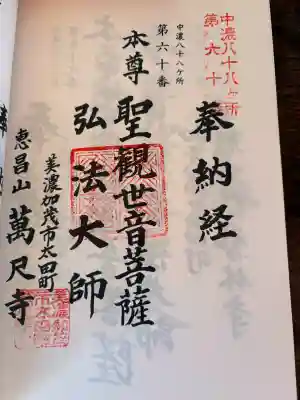 中濃八十八ヶ所
第六十
奉納経
中濃八十八ヶ所
第六十番
本尊
聖觀世音菩薩
弘法大師
美濃加茂市太田町
恵昌山
萬尺寺